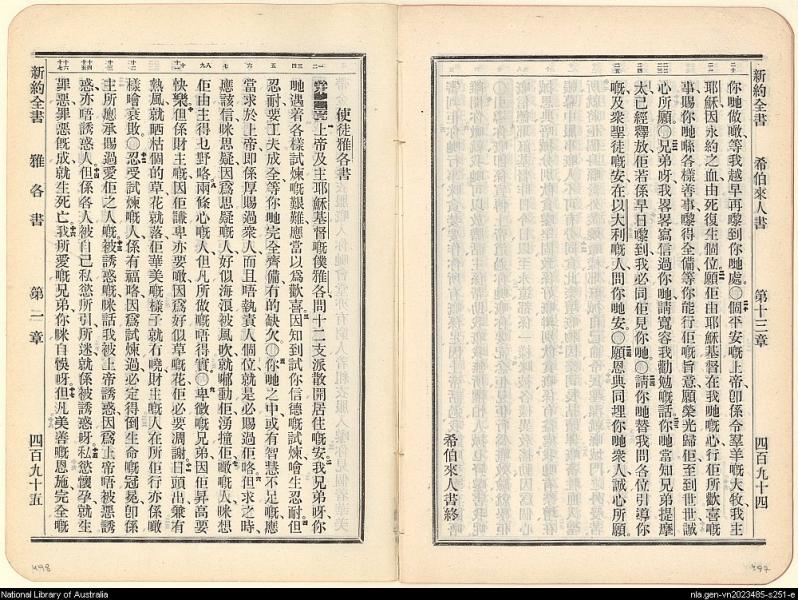 新約全書 希伯來人書 第十三章 四百九十四
你哋做噉等我越早再嚟到你哋處〇個平安嘅上帝卽係令羣羊嘅大牧我主
耶穌因永約之血由死復生個位願佢由耶穌基督在我哋嘅心行佢所歡喜嘅
事賜你哋喺各樣善事嚟得全備等你能行佢嘅旨意願榮光歸佢至到世世誠
心所願〇兄弟呀我畧畧寫信過你哋請寬容我勸勉嘅話你哋當知兄弟提摩
太已經釋放佢若係早日嚟到我必同佢見你哋〇請你哋替我問各位引導你
嘅及衆聖徒嘅安在以大利嘅人問你哋安〇願恩典同埋你哋衆人誠心所願
希伯來人書終
使徒雅各書
上帝及主耶穌基督嘅僕雅各問十二支派散開居住嘅安我兄弟呀你
哋遇着各樣試煉嘅艱難應當以爲歡喜因知到試你信德嘅試煉噲生忍耐但
忍耐要工夫成全等你哋完全齊備有的缺欠〇你哋之中或有智慧不足嘅應
當求於上帝卽係厚賜過衆人而且唔執責人個位就是必賜過佢咯但求之時
應該信咪思疑因爲思疑嘅人好似海浪被風吹就嘟動佢湧撞佢嘅人咪想
佢由主得乜野咯兩條心嘅人但凡所做嘅唔得實〇卑微嘅兄弟因佢昇高要
快樂但係財主嘅因佢謙卑亦要噉因爲好似草嘅花佢必要凋謝日頭出兼有
熱風就晒枯個的草花就落佢華美嘅樣子就有曉財主嘅人在所佢行亦係噉
樣噲衰敗〇忍受試煉嘅人係有福咯因爲試煉過必定得倒生命嘅冠冕卽係
主所應承賜過愛佢之人嘅被誘惑嘅咪話我被上帝誘惑因爲上帝唔被惡誘
惑亦唔誘惑人但係各人被自己私慾所引所迷就係被誘惑呀私慾懷孕就生
罪惡罪惡旣成就生死亡我所愛嘅兄弟你咪自悞呀但凡美善嘅恩施完全嘅
新約全書 雅各書 第一章 四百九十五
498
497
National Library of Australia
nla.gen-vn2023485-s251-e